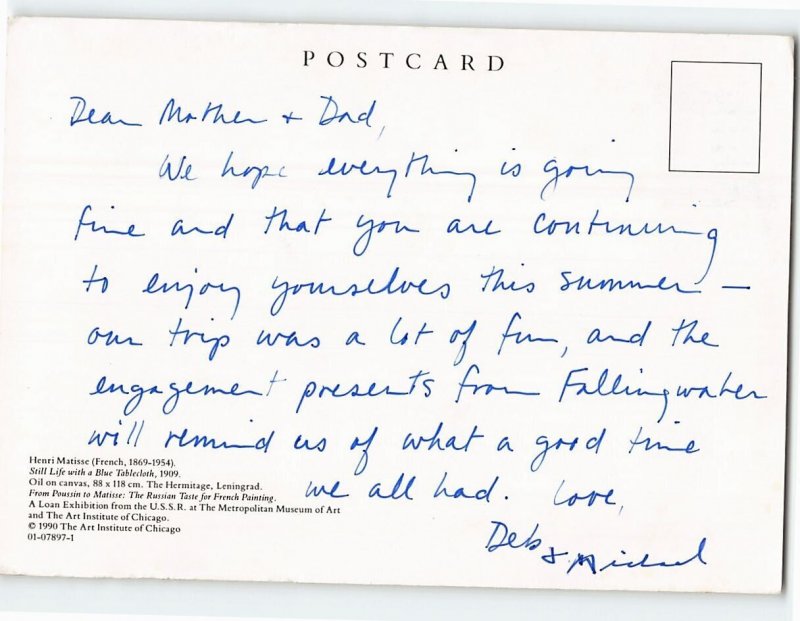 POSTCARD
Dear Mother + Dad,
We hope everything is going
fine and that you are continuing
to enjoy yourselves this summer —
our trip was a lot of fun, and the
engagement presents from Fallingwater
will remind us of what a good time
we all had. Love,
Deb
& Michael
Henri Matisse (French, 1869-1954).
Still Life with a Blue Tablecloth, 1909.
Oil on canvas, 88 x 118 cm. The Hermitage, Leningrad.
From Poussin to Matisse: The Russian Taste for French Painting.
A Loan Exhibition from the U.S.S.R. at The Metropolitan Museum of Art
and The Art Institute of Chicago.
© 1990 The Art Institute of Chicago
01-07897-1